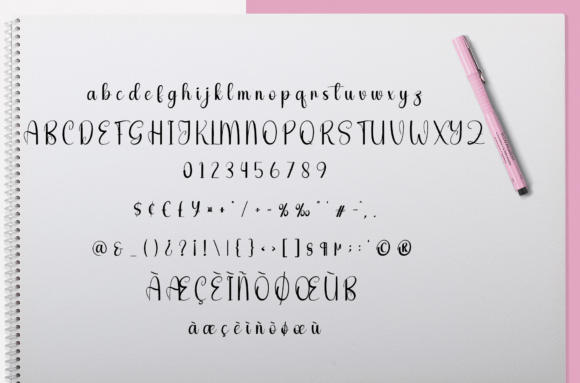 abcdefghijklmnopqrstuvwxyz
ABCDEFGHIJKLMNOPQRSTUVWXYZ
0123456789
$¢€£¥¤+*/÷-%‰"#~,.
@&_()¿?¡!\|{}‹›[]§¶µ;:'©®
ÀÆÇÈÌÑÒØŒÙß
àæçèìñòøœù